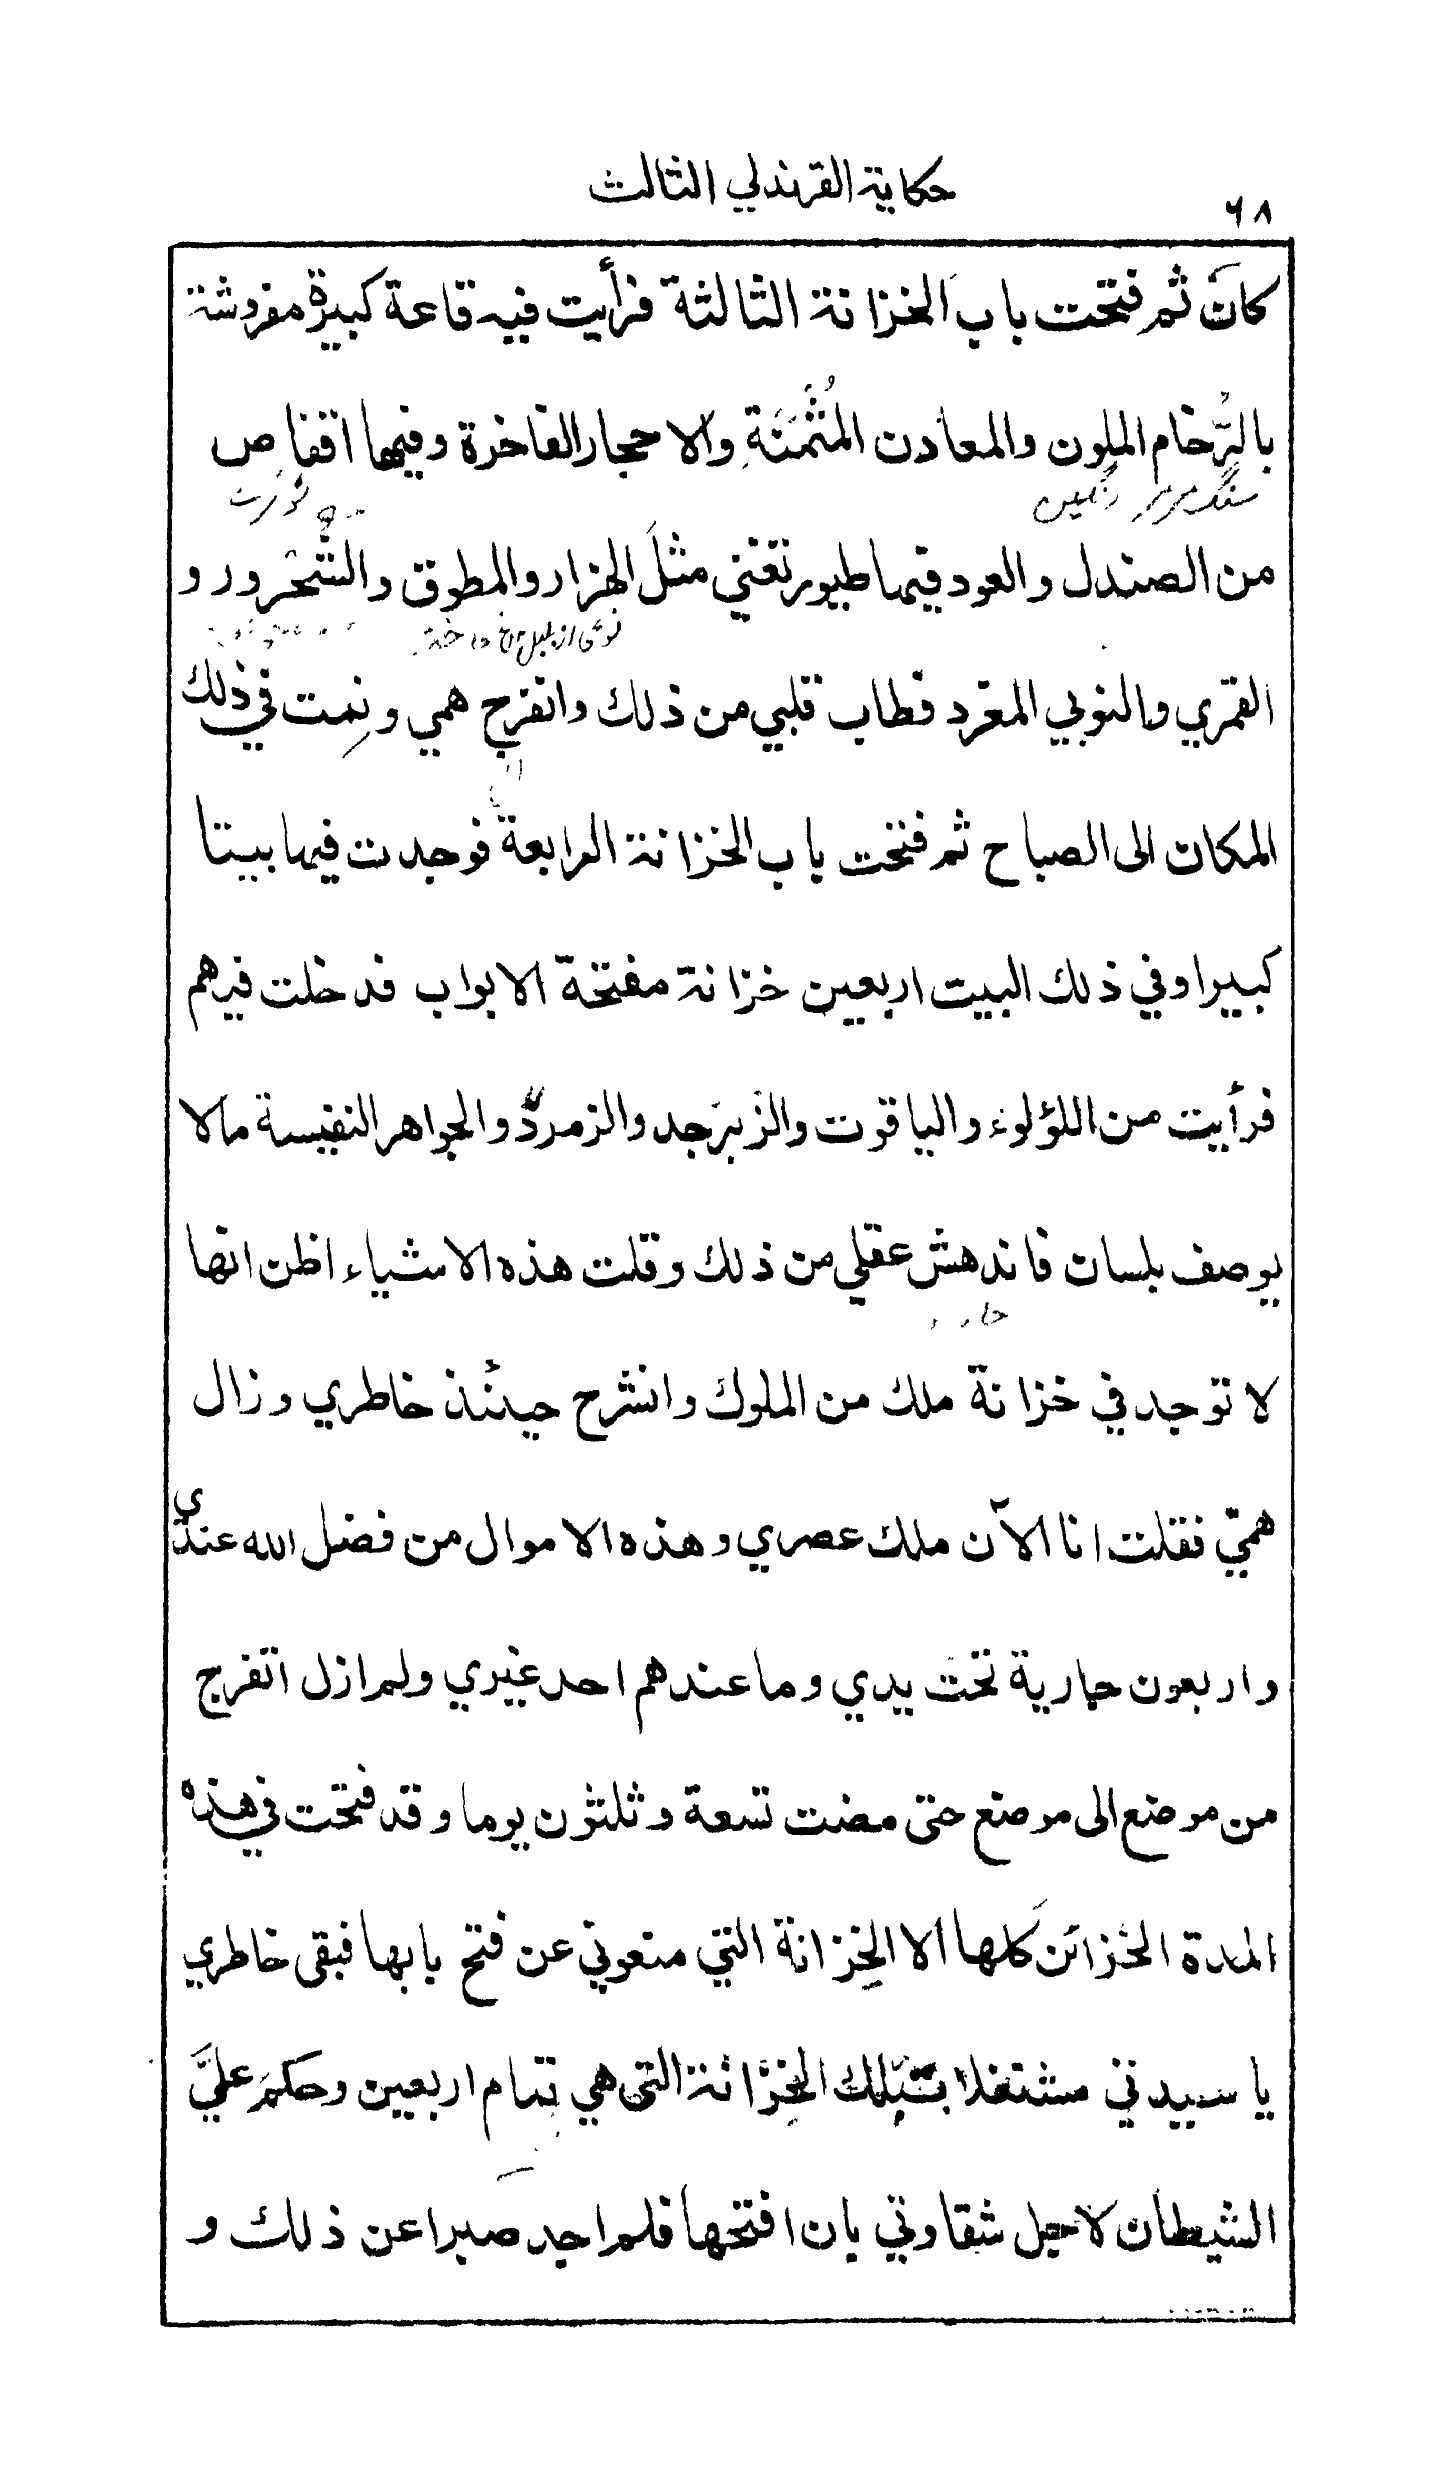 حكاية القرندلي الثالث
٦٨
كانَ ثم فتحت باب الخزانة الثالثة فرأيت فيه قاعة كبيرة مفروشة
بالرُّخام الملون والمعادن المُثْمَنَةِ والاحجار الفاخرة وفيها اقفاص
سنگ مرمر رنگین
من الصندل والعود فيها طيور تغني مثلَ الهزار والمطوق والشُّحْرور و
القمري والنوبي المغرد فطاب قلبي من ذلك وانفرج همي ونِمت في ذلك
المكان الى الصباح ثم فتحت باب الخزانة الرابعة فوجدت فيها بيتا
كبيرا وفي ذلك البيت اربعين خزانة مفتحة الابواب فدخلت فيرهم
فرأيت من اللؤلوء والياقوت والزبرجد والزمردّ والجواهر النفيسة مالا
يوصف بلسان فاندهش عقلي من ذلك وقلت هذه الاشياء اظن انها
لا توجد في خزانة ملك من الملوك وانشرح حينئذ خاطري وزال
همّي فقلت انا الآن ملك عصري وهذه الاموال من فضل الله عندي
واربعون جارية تحت يدي وما عندهم احد غيري ولم ازل اتفرج
من موضع الى موضع حتى مضت تسعة وثلثون يوما وقد فتحت في هذه
المدة الخزائن كلها الا الخِزانة التي منعوني عن فتح بابها فبقى خاطري
يا سيدتي مشتغلا بتلك الخزانة التي هي تمام اربعين وحكمَ عليَّ
الشيطان لاجل شقاوتي بان افتحها فلم اجد صبرا عن ذلك و